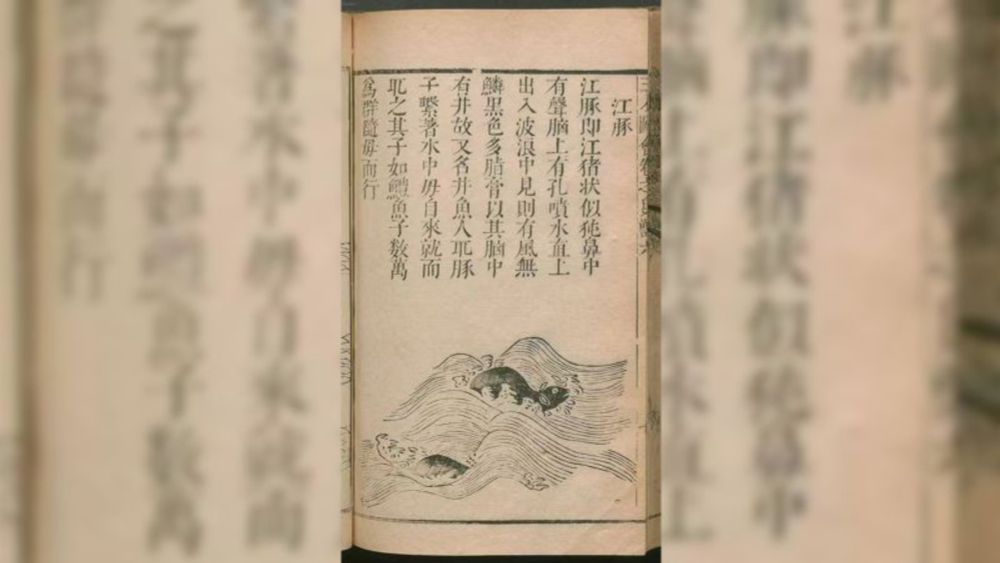 江豚
江豚即江猪状似㹠鼻中
有聲腦上有孔噴水直上
出入波浪中見則有風無
鱗黑色多腊膏以其腦中
有井故又名井魚人取豚
子繫著水中母自來就而
取之其子如鱧魚子數萬
為群隨母而行